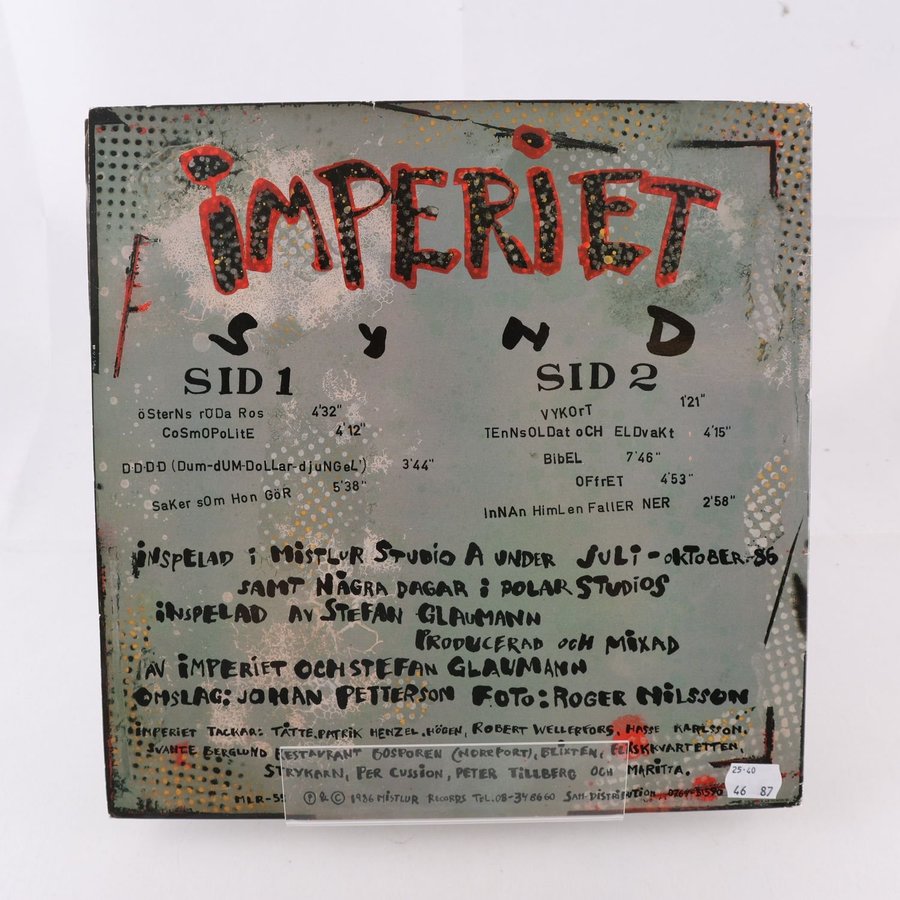 iMPERiET
SYND
SID 1
öSterNs rÖDa Ros 4'32"
CoSmOPoLitE 4'12"
D-D-D-D (Dum-dUM-DoLLar-djuNGeL') 3'44"
SaKer sOm Hon GöR 5'38"
SID 2
VYKOrT 1'21"
TEnNsOLDat oCH ELDvaKt 4'15"
BibEL 7'46"
OFfrET 4'53"
InNAn HimLen FallER NER 2'58"
iNSPELAD i MiSTLUR STUDiO A UNDER JULi-OKTOBER-86
SAMT NÅGRA DAGAR i POLAR STUDiOS
iNSPELAD AV STEFAN GLAUMANN
PRODUCERAD OCH MiXAD
AV iMPERiET OCH STEFAN GLAUMANN
OMSLAG: JOHAN PETTERSON FOTO: ROGER NiLSSON
iMPERiET TACKAR: TÅTTE, PATRiK HENZEL, HÖGEN, ROBERT WELLERFORS, HASSE KARLSSON,
SVANTE BERGLUND RESTAURANT BOSPOREN (NORRPORT), BLiXTEN, FLÄSKKVARTETTEN,
STRYKARN, PER CUSSiON, PETER TiLLBERG OCH MARiTTA.
MLR-55 Ⓟ & © 1986 MiSTLUR RECORDS TEL. 08-34 86 60 SAM-DiSTRiBUTiON
25-40
46 87